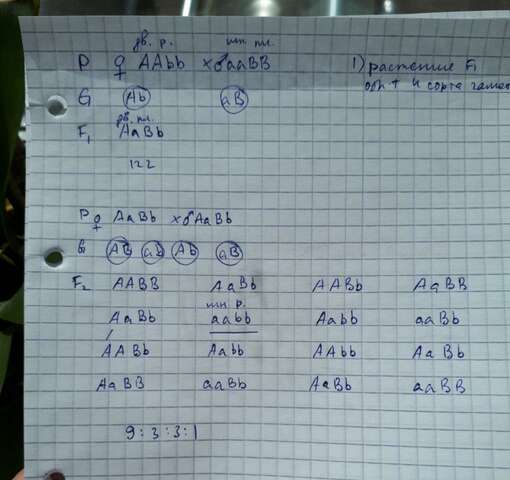 дв. р. мн. пл.
P ♀ AAbb × ♂ aaBB 1) растение F₁
G Ab aB 4 сорта гамет
дв. пл.
F₁ AaBb
122
P ♀ AaBb × ♂ AaBb
G AB ab Ab aB
F₂ AABB AaBb AABb AaBB
мн. р.
AaBb aabb Aabb aaBb
AABb Aabb AAbb AaBb
AaBB aaBb AaBb aaBB
9:3:3:1